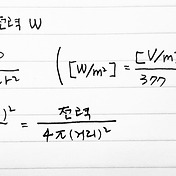 전력 W
( [W/m²] = [V/m
377
)² = 전력
4π(거리)²